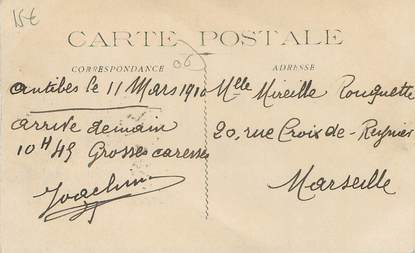 15€
CARTE POSTALE
CORRESPONDANCE
ADRESSE
06
Antibes le 11 Mars 1910
arrive demain
10H 45 Grosses caresses
Joachim
Mlle Mireille Rouquette
20, rue Croix-de-Reynier
Marseille